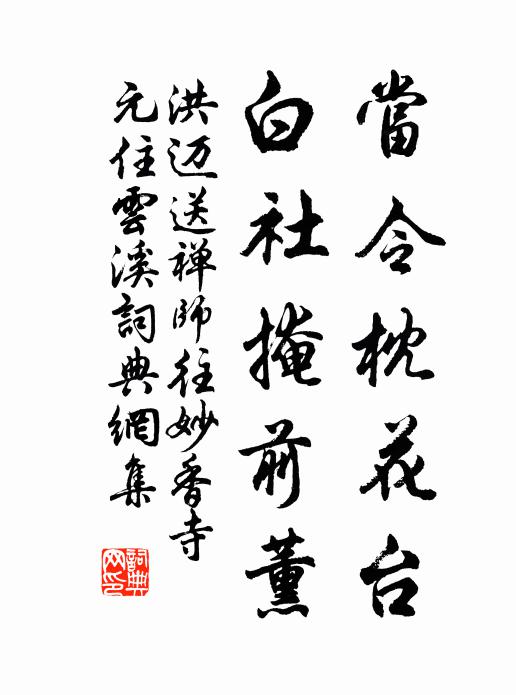 當令枕花台
白社掩前薰
洪迈送禅師往妙香寺
元住雲溪詞典網集
詞典
网印